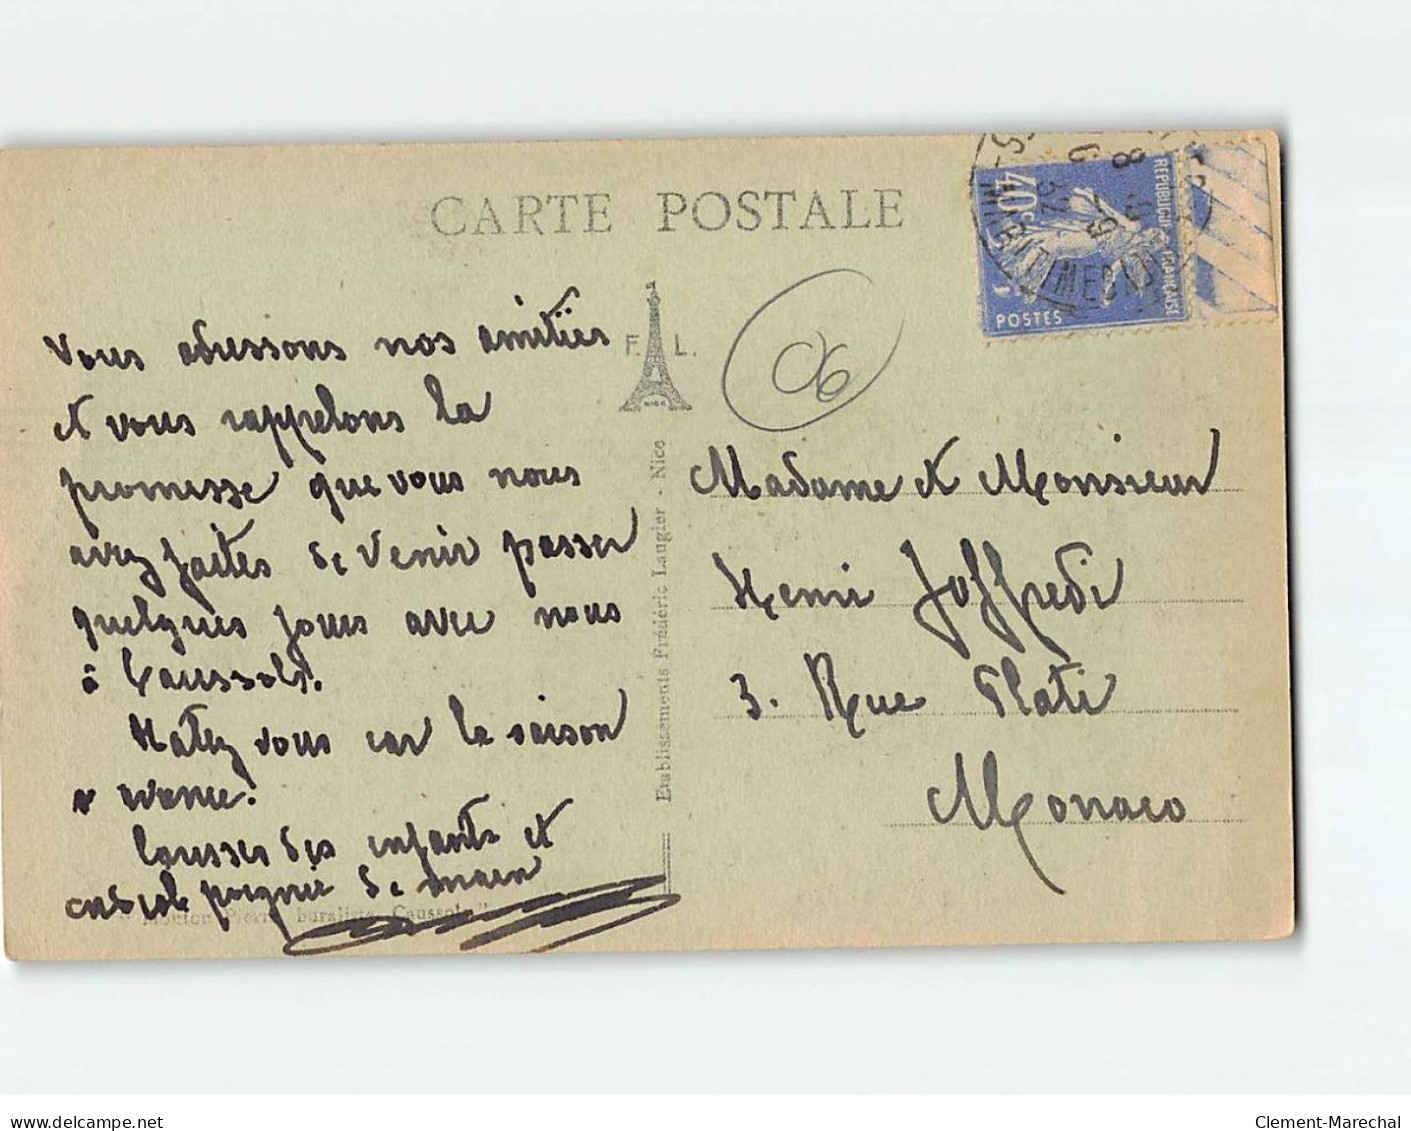 CARTE POSTALE
F. L.
NICE
06
40c
REPUBLIQUE FRANCAISE
POSTES
MARITIMES
Vous adressons nos amitiés
et vous rappelons la
promesse que vous nous
avez faites de venir passer
quelques jours avec nous
à Caussols.
Hatez vous car la saison
avance!
Caresses des enfants et
cordiale poignée de main
Etablissements Frédéric Laugier - Nice
Madame et Monsieur
Henri Joffredi
3. Rue Plati
Monaco
Mouton Pierre, buraliste Caussols
delcampe.net
Clement-Marechal